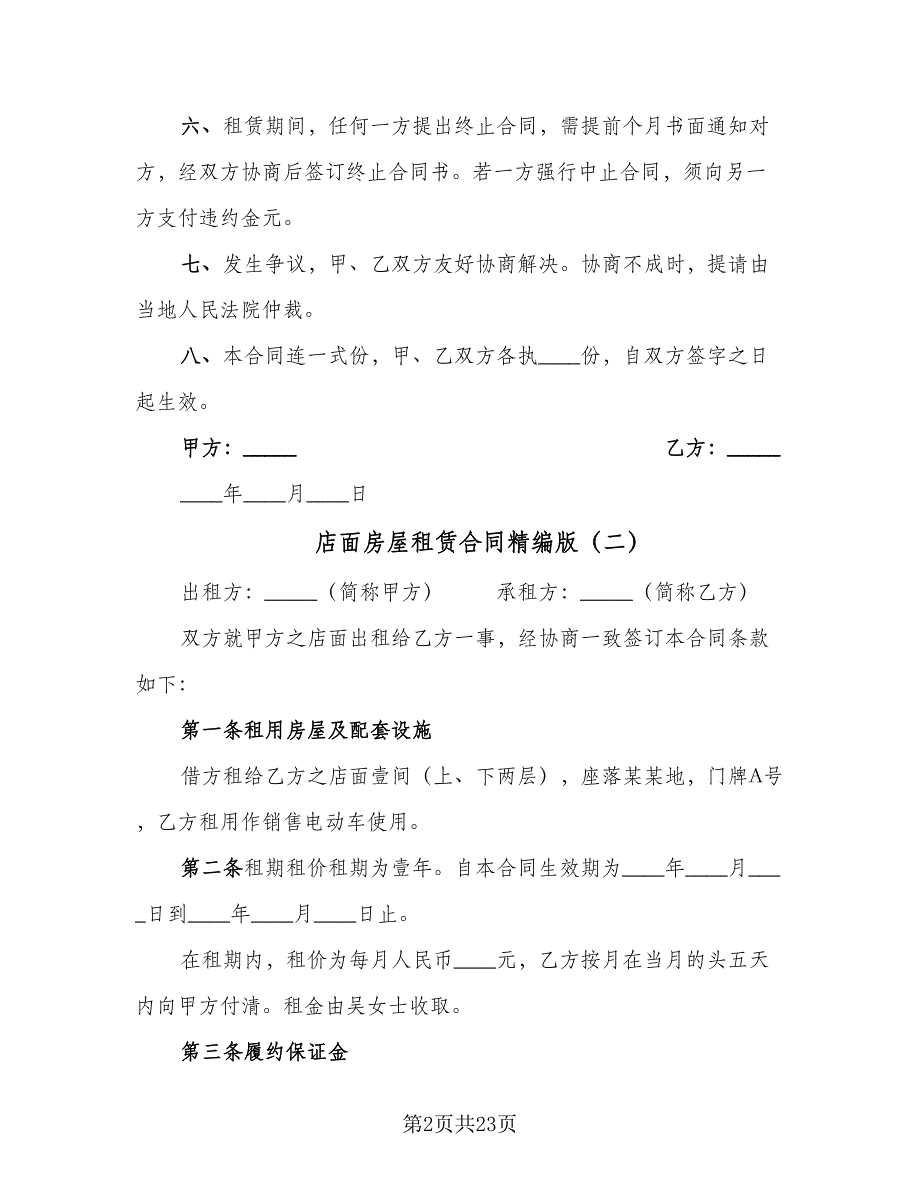 六、租赁期间，任何一方提出终止合同，需提前个月书面通知对
方，经双方协商后签订终止合同书。若一方强行中止合同，须向另一
方支付违约金元。
七、发生争议，甲、乙双方友好协商解决。协商不成时，提请由
当地人民法院仲裁。
八、本合同连一式份，甲、乙双方各执____份，自双方签字之日
起生效。
甲方：_____ 乙方：_____
____年____月____日
店面房屋租赁合同精编版（二）
出租方：_____（简称甲方） 承租方：_____（简称乙方）
双方就甲方之店面出租给乙方一事，经协商一致签订本合同条款
如下：
第一条租用房屋及配套设施
借方租给乙方之店面壹间（上、下两层），座落某某地，门牌A号
，乙方租用作销售电动车使用。
第二条租期租价租期为壹年。自本合同生效期为____年____月___
_日到____年____月____日止。
在租期内，租价为每月人民币____元，乙方按月在当月的头五天
内向甲方付清。租金由吴女士收取。
第三条履约保证金
第2页共23页